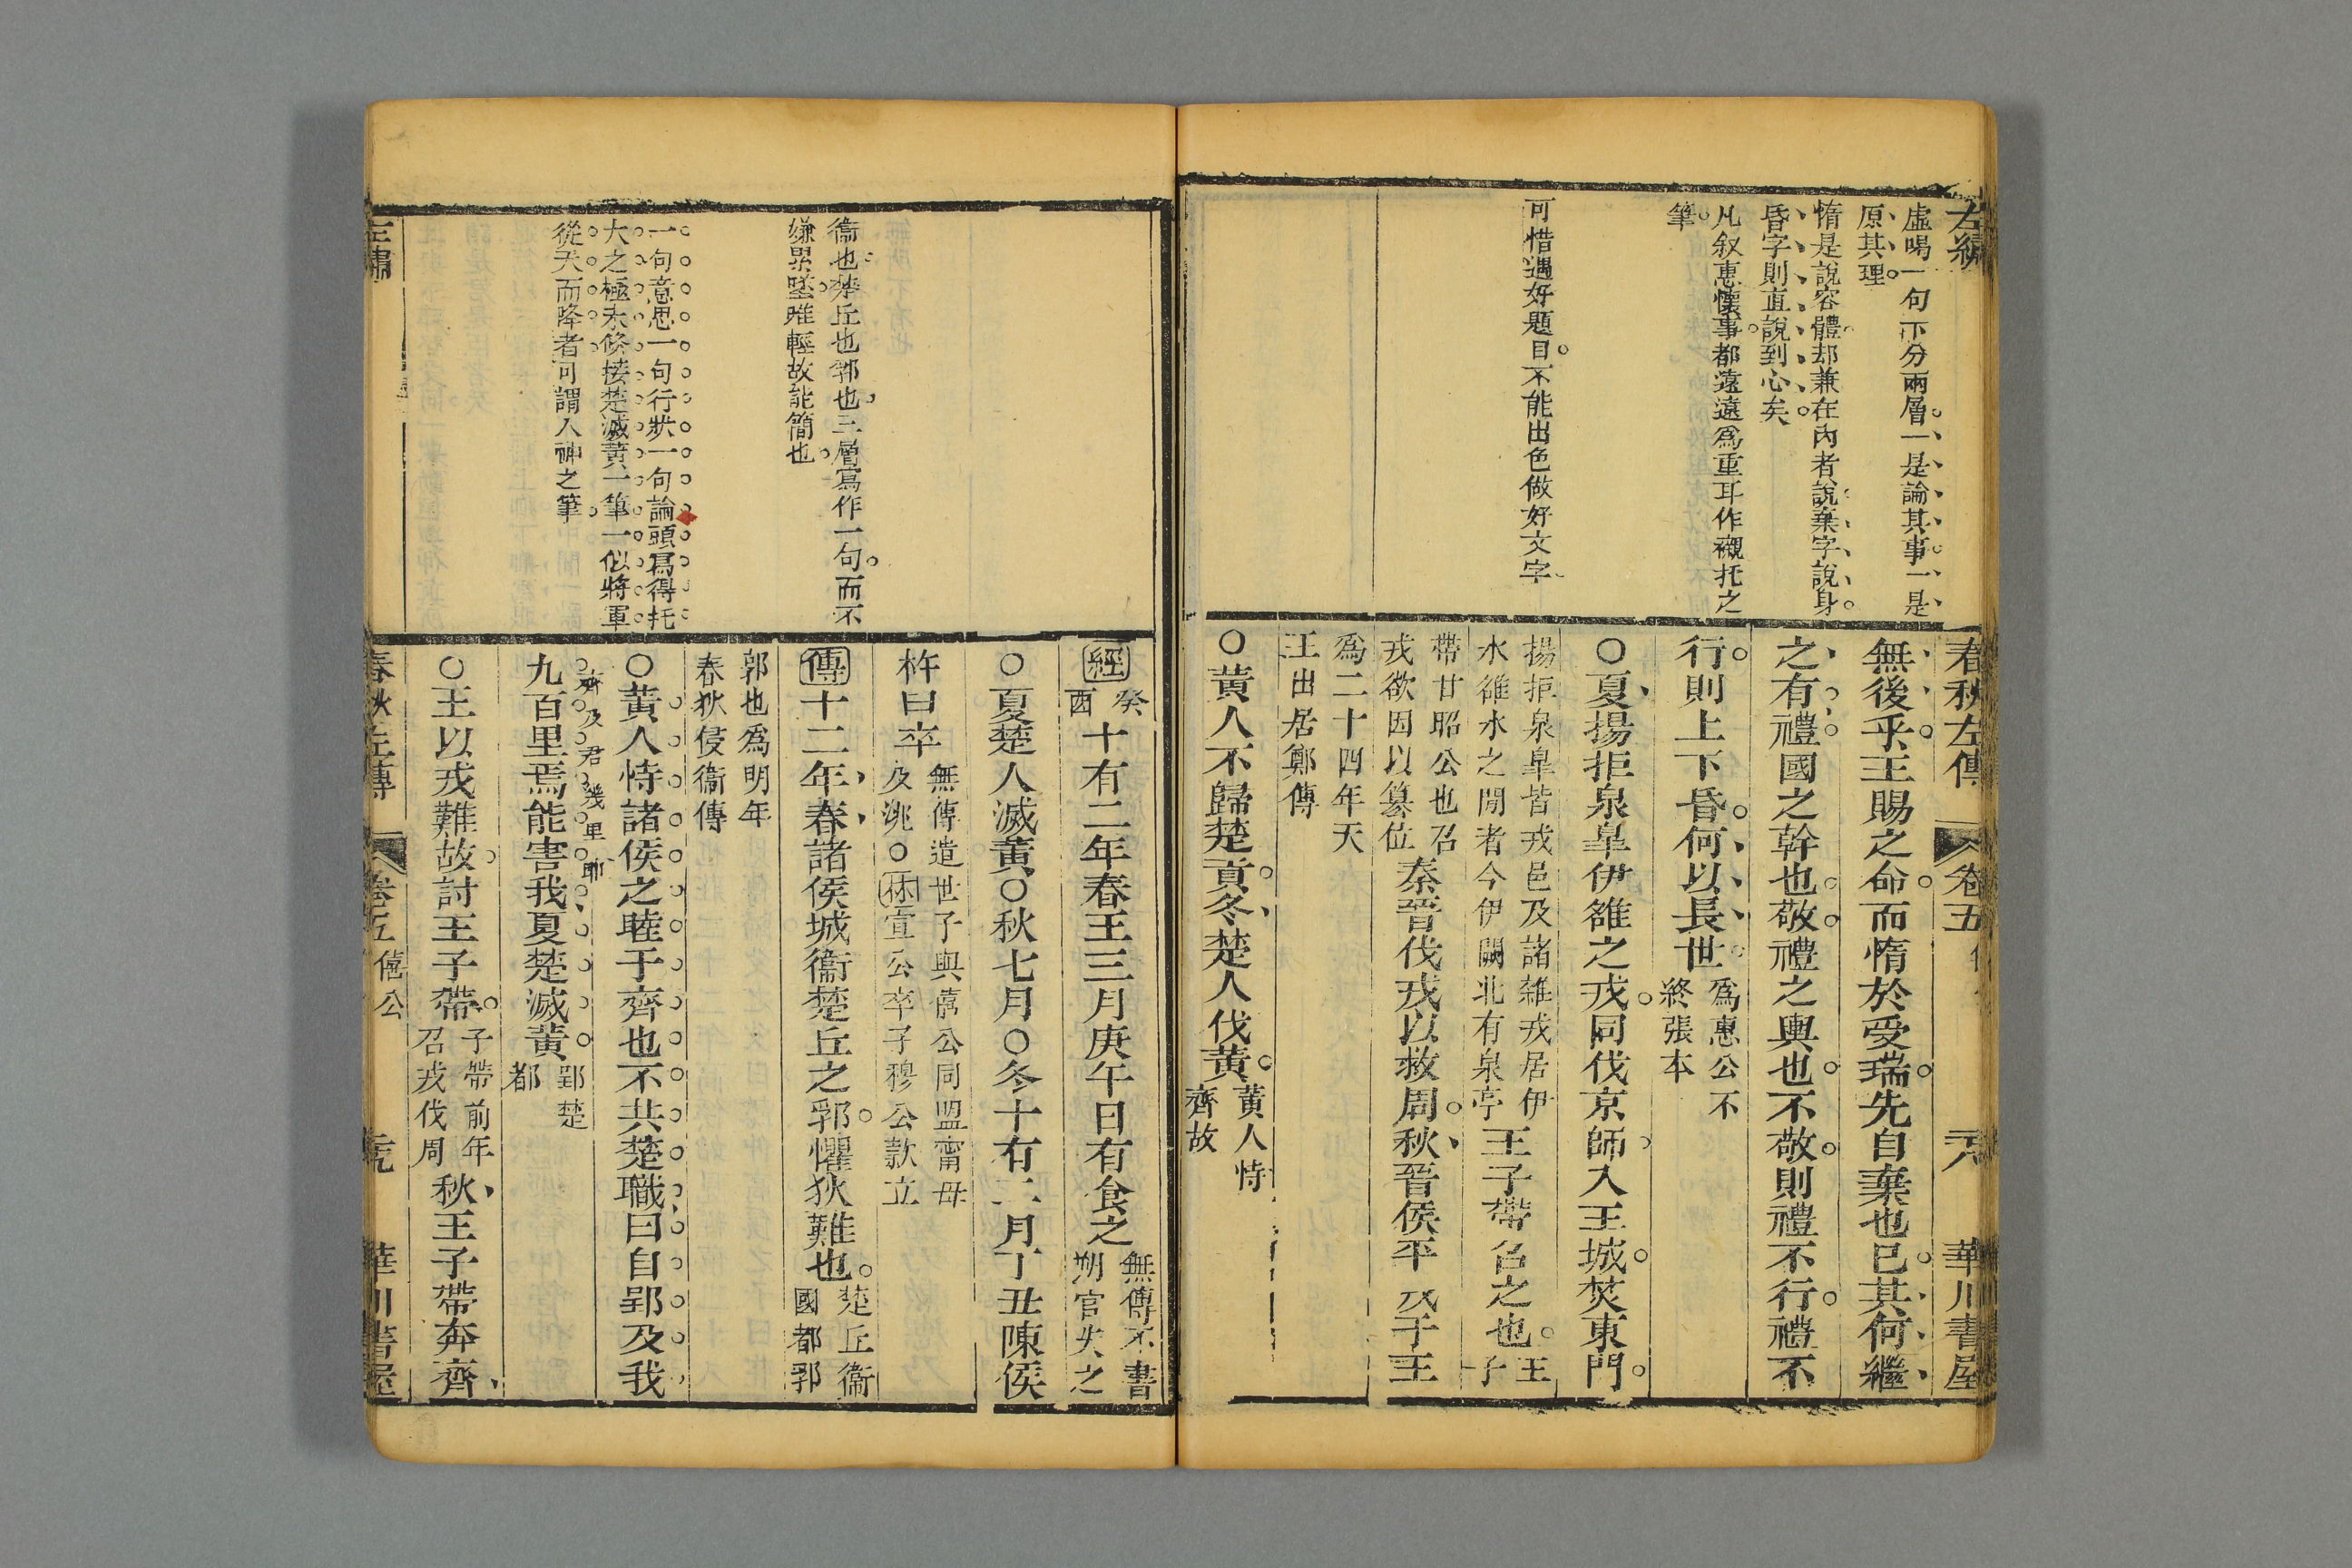 左繡
虛喝一句下分兩層一是論其事一是
原其理
惰是說容體却兼在內者說棄字說身
昏字則直說到心矣
凡叙惠懷事都遠遠爲重耳作襯托之
筆
可惜遇好題目不能出色做好文字
春秋左傳
卷五
華川書屋
無後乎王賜之命而惰於受瑞先自棄也已其何繼
之有禮國之幹也敬禮之輿也不敬則禮不行禮不
行則上下昏何以長世
爲惠公不
終張本
○夏揚拒泉皐伊雒之戎同伐京師入王城焚東門
揚拒泉皐皆戎邑及諸雜戎居伊
水雒水之閒者今伊闕北有泉亭
王子帶召之也
王子
帶甘昭公也召
戎欲因以簒位
秦晉伐戎以救周秋晉侯平戎于王
爲二十四年天
王出居鄭傳
○黃人不歸楚貢冬楚人伐黃
黃人恃
齊故
衞也楚丘也郛也三層寫作一句而不
嫌累墜雖輕故能簡也
一句意思一句行狀一句論頭寫得托
大之極末倏接楚滅黃一筆一似將軍
從天而降者可謂入神之筆
經
癸
酉
十有二年春王三月庚午日有食之
無傳不書
朔官失之
○夏楚人滅黃○秋七月○冬十有二月丁丑陳侯
杵臼卒
無傳遣世子與僖公同盟甯母
及洮○林宣公卒子穆公款立
傳十二年春諸侯城衞楚丘之郛懼狄難也
楚丘衞
國都郛
郭也爲明年
春狄侵衞傳
○黃人恃諸侯之睦于齊也不共楚職曰自郢及我
齊及君幾里
九百里焉能害我夏楚滅黃
郢楚
都
○王以戎難故討王子帶
子帶前年
召戎伐周
秋王子帶奔齊
左繡
春秋左傳
卷五
僖公
華川書屋